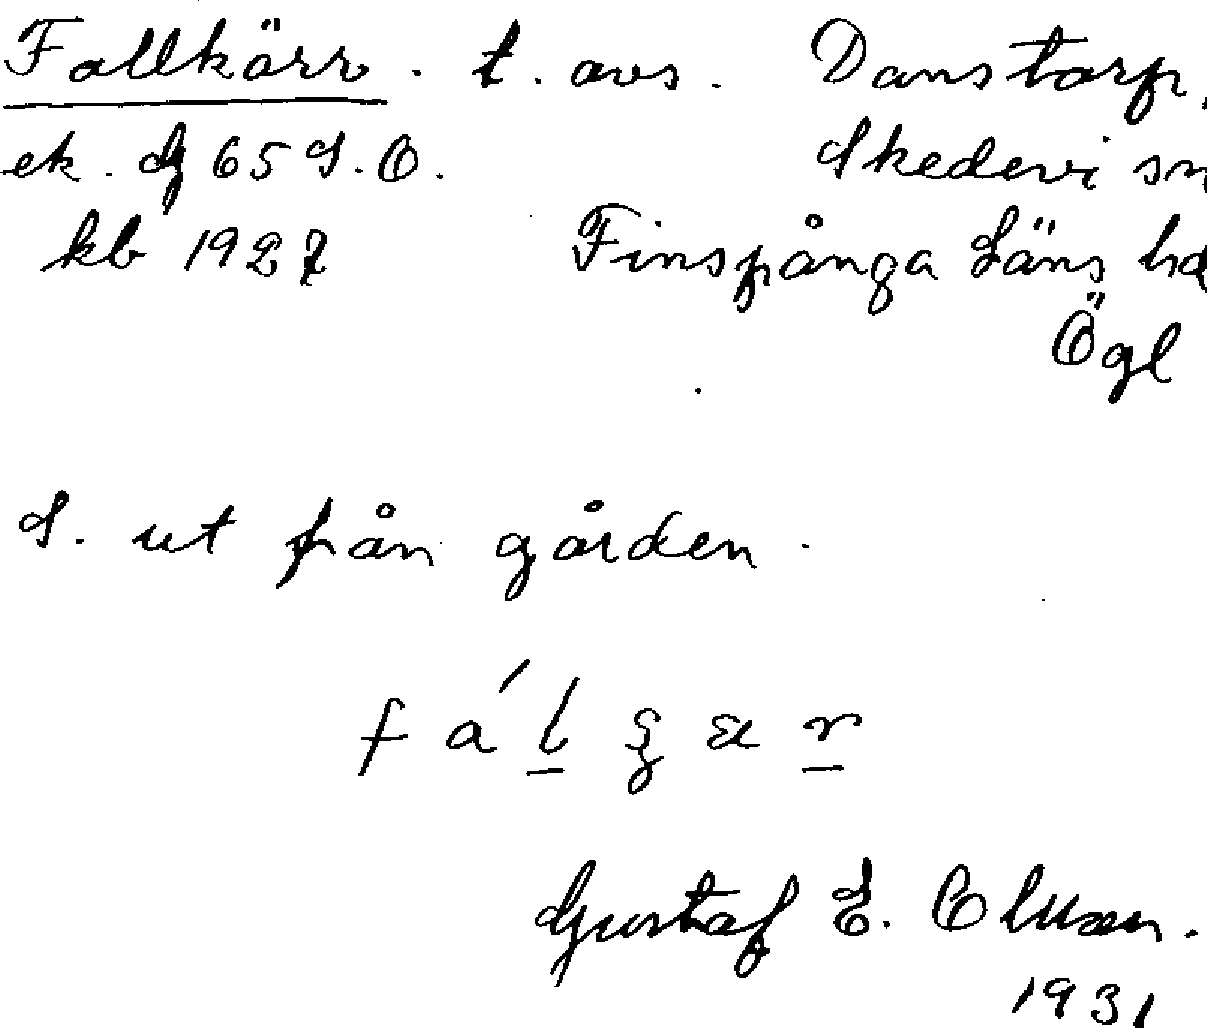 Fallkärr. t. avs. Danstorp.
ek. dg 65 S.O. Skedevi sn
kb 1927 Finspånga Läns hd
Ögl
S. ut från gården.
Gustaf E.
1931